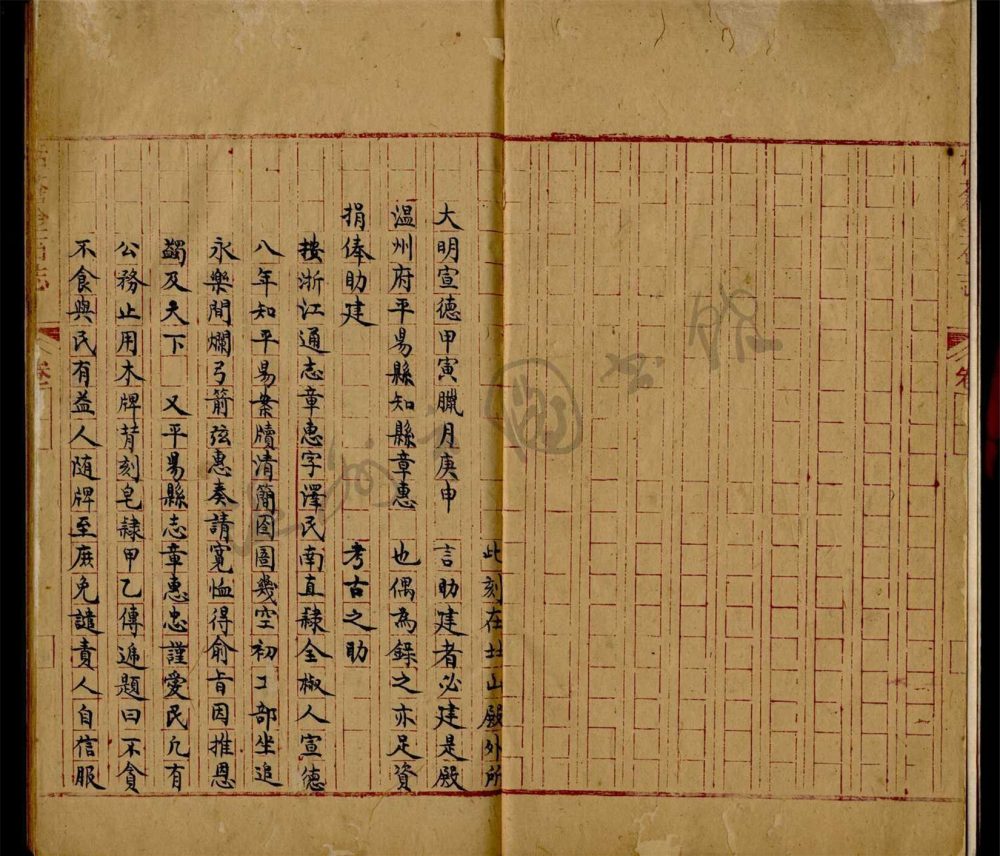 此刻在土山殿外所
大明宣德甲寅臘月庚申　言助建者必建是殿
溫州府平昜縣知縣章惠　也偶為錄之亦足資
捐俸助建　考古之助
按浙江通志章惠字澤民南直隸全椒人宣德
八年知平昜案牘清簡囹圄幾空初工部坐追
永樂間爛弓箭弦惠奏請寬恤得俞旨因推恩
蠲及天下　又平昜縣志章惠忠謹愛民凢有
公務止用木牌背刻皂隸甲乙傳遞題曰不貪
不食與民有益人隨牌至庶免譴責人自信服